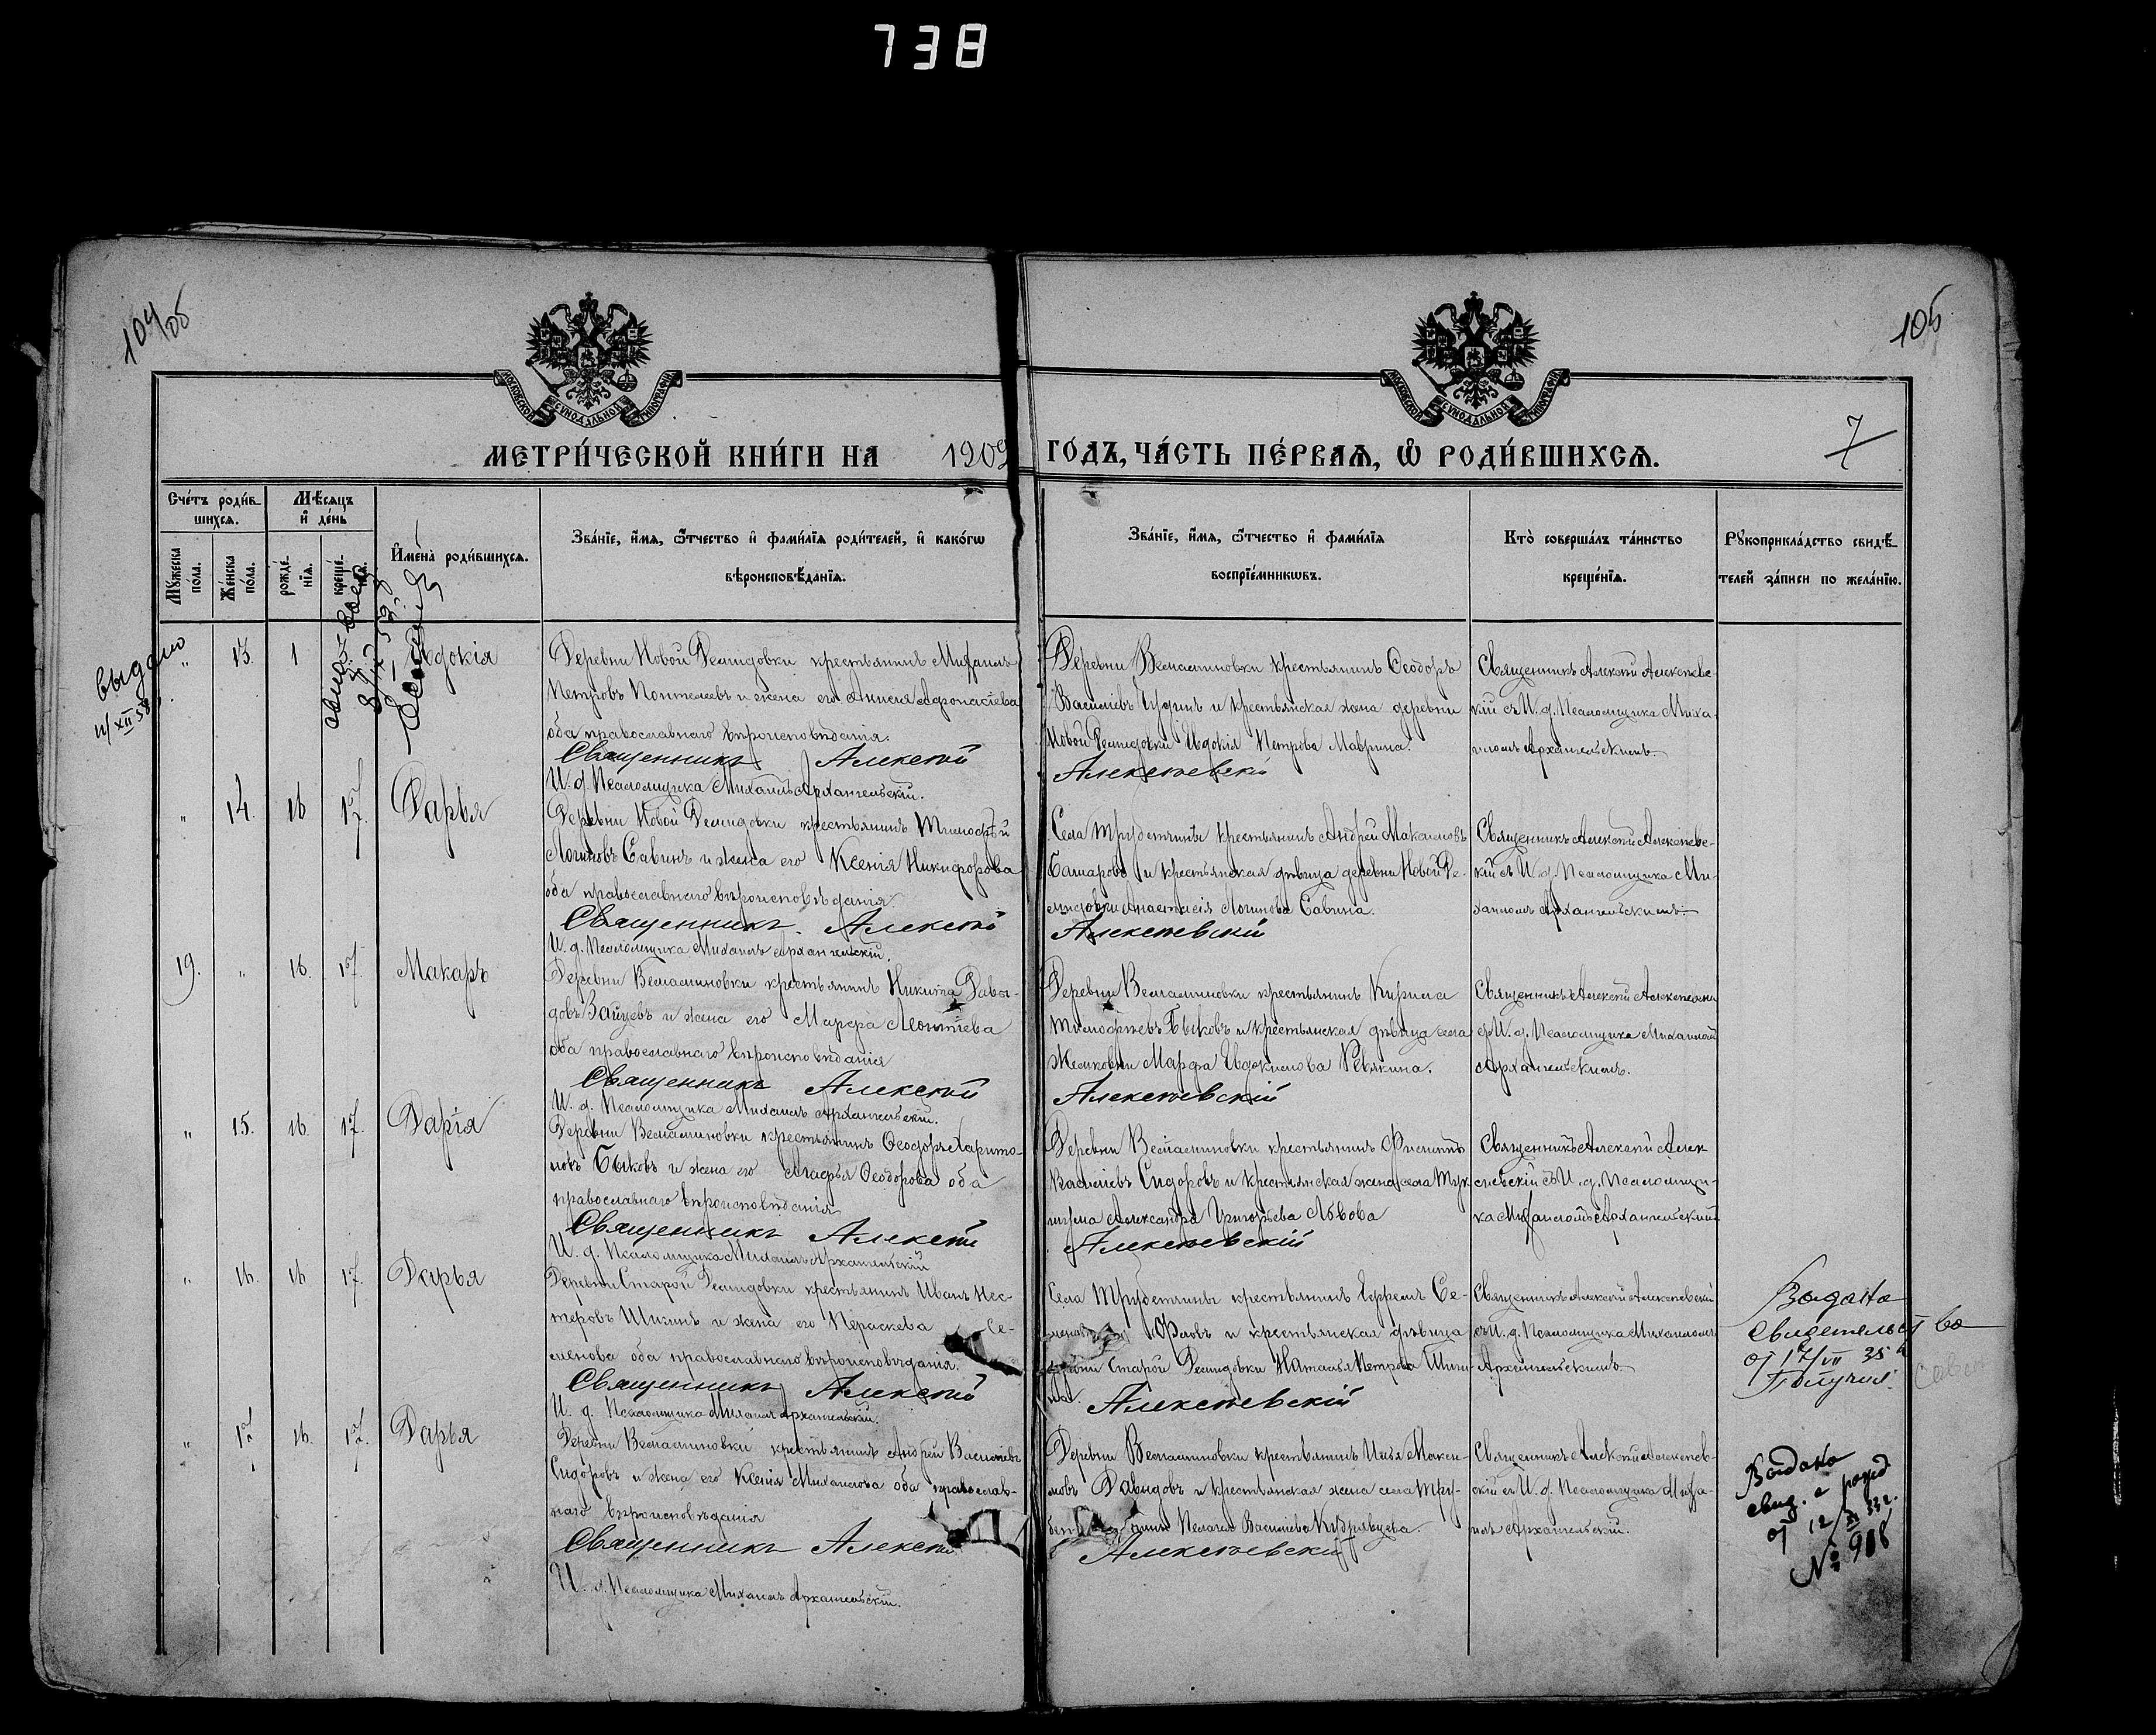 738
104 об
105
МОСКОВСКОЙ СѴНОДАЛЬНОЙ ТИПОГРАФІИ
МОСКОВСКОЙ СѴНОДАЛЬНОЙ ТИПОГРАФІИ
МЕТРИ́ЧЕСКОЙ КНИ́ГИ НА 1909 ГО́ДЪ, ЧА́СТЬ ПЕ́РВАѦ, Ѽ РОДИ́ВШИХСѦ.
7
Сче́тъ роди́в-
шихсѧ.
Мѣ́сѧцъ
и҆ де́нь
Мꙋ́жеска
по́ла.
Же́нска
по́ла.
рожде́-
нїѧ.
креще́-
И҆мена̀ роди́вшихсѧ.
Зва́нїе, и҆́мѧ, ѻ҆́тчество и҆ фами́лїѧ роди́телей, и҆ како́гѡ
вѣроисповѣ́данїѧ.
Зва́нїе, и҆́мѧ, ѻ҆́тчество и҆ фами́лїѧ
воспрїе́мникѡвъ.
Кто̀ соверша́лъ та́инство
креще́нїѧ.
Рꙋкоприкла́дство свидѣ́-
телей за́писи по жела́нїю.
выдано
11/XII 38
" 13. 1
Евдокія
Деревни Новой Демидовки крестьянинъ Михаилъ
Петровъ Пантелеевъ и жена его Анисія Афонасіева
оба православнаго вѣроисповѣданія.
Священникъ Алексѣй
И. д. Псаломщика Михаилъ Архангельскій.
Деревни крестьянинъ Ѳеодоръ
Васильевъ и крестьянская жена деревни
Новой Демидовки Евдокія Петрова Маврина.
Алексѣевскій
Священникъ Алексѣй Алексѣевс-
кій съ И. д. Псаломщика Миха-
иломъ Архангельскимъ.
" 14. 16 17. Дарья
Деревни Новой Демидовки крестьянинъ Тимофѣй
Логиновъ Савинъ и жена его Ксенія Никифорова
оба православнаго вѣроисповѣданія.
Священникъ. Алексѣй
И. д. Псаломщика Михаилъ Архангельскій.
Села крестьянинъ Андрей Максимовъ
и крестьянская дѣвица деревни Новой Де-
мидовки Анастасія Логинова Савина.
Алексѣевскій
Священникъ Алексѣй Алексѣевс-
кій съ И. д. Псаломщика Ми-
хаиломъ Архангельскимъ.
19. " 16. 17. Макаръ
Деревни крестьянинъ Никита Давы-
довъ Зайцевъ и жена его Марфа Леонтіева
оба православнаго вѣроисповѣданія
Священникъ Алексѣй
И. д. Псаломщика Михаилъ Архангельскій.
Деревни крестьянинъ Кирила
Тимофѣевъ Быковъ и крестьянская дѣвица села
Марфа Евдокимова Ревякина.
Алексѣевскій
Священникъ Алексѣй
съ И. д. Псаломщика Михаиломъ
Архангельскимъ.
" 15. 16. 17. Дарія
Деревни крестьянинъ Ѳеодоръ Харито-
новъ Быковъ и жена его Агафья Ѳеодорова оба
православнаго вѣроисповѣданія
Священникъ Алексѣй
И. д. Псаломщика Михаилъ Архангельскій
Деревни крестьянинъ Филиппъ
Васильевъ Сидоровъ и крестьянская жена села
Александра Григорьева Львова
Алексѣевскій
Священникъ Алексѣй Алек-
сѣевскій съ И. д. Псаломщи-
ка Михаиломъ Архангельскимъ
" 16. 16 17. Дарья
Деревни Старой Демидовки крестьянинъ Иванъ Нес-
теровъ Шигинъ и жена его Параскева Се-
менова оба православнаго вѣроисповѣданія.
Священникъ Алексѣй
И. д. Псаломщика Михаилъ Архангельскій.
Села крестьянинъ Ефремъ Се-
и крестьянская дѣвица
Старой Демидовки Наталья Петрова Шиги-
на. Алексѣевскій
Священникъ Алексѣй Алексѣевскій
съ И. д. Псаломщика Михаиломъ
Архангельскимъ.
Выдано
свидетельство
от 17/VII 35
Получил
" 17 16. 17. Дарья
Деревни крестьянинъ Андрей Васильевъ
Сидоровъ и жена его Ксенія Михаилова оба православ-
наго вѣроисповѣданія
Священникъ Алексѣй
И. д. Псаломщика Михаилъ Архангельскій.
Деревни крестьянинъ Илья Макси-
мовъ Давыдовъ и крестьянская жена села
Пелагея Васильева Кудрявцева.
Алексѣевскій
Священникъ Алексѣй Алексѣев-
скій съ И. д. Псаломщика Миха-
илъ Архангельскій.
Выдано
свид. о рожд
от 12/XI 33 г.
№ 908